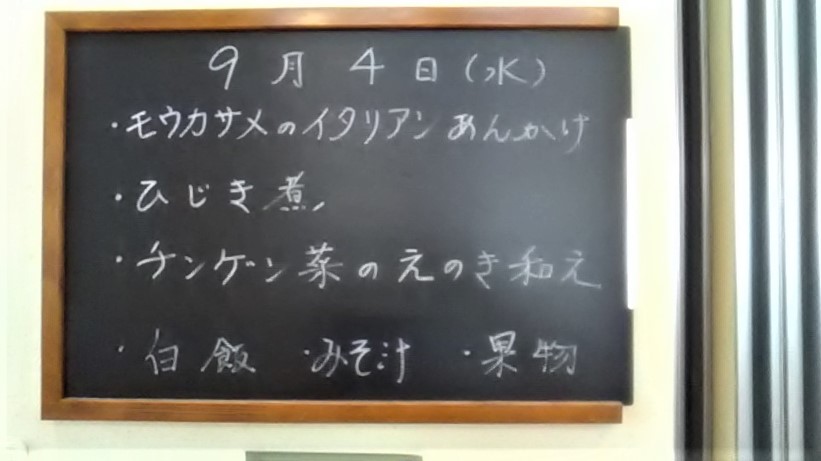 9月4日(水)
・モウカサメのイタリアンあんかけ
・ひじき煮
・チンゲン菜のえのき和え
・白飯 ・みそ汁 ・果物